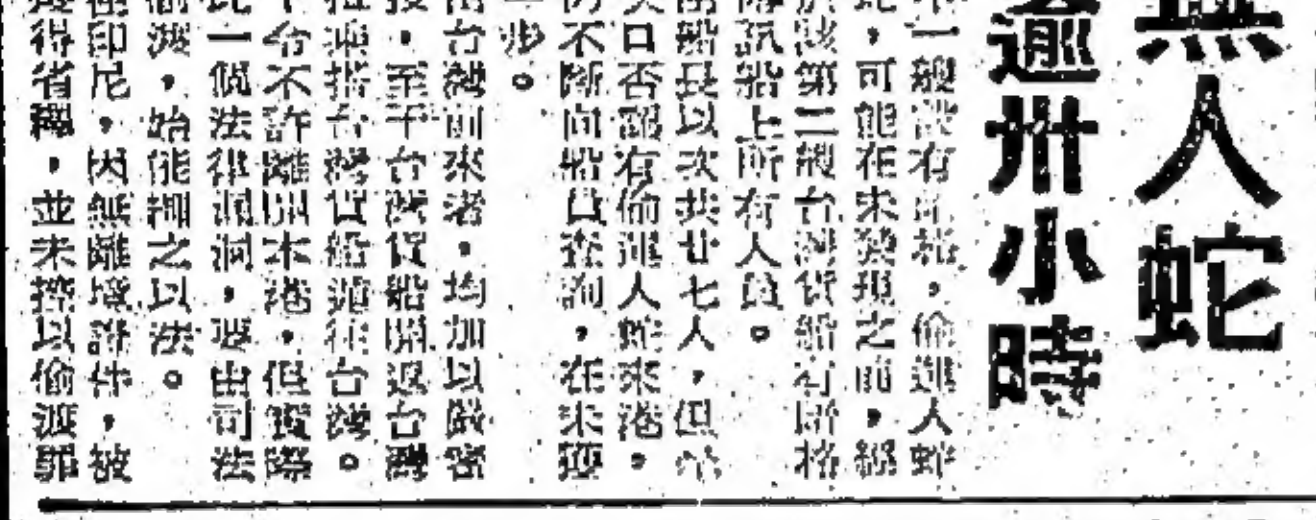 無人蛇
逾卅小時
一艘設有暗格，偷運人蛇
蛇，可能在未發現之前，經
該第二艘台灣貨船有暗格
傳訊船上所有人員。
船長以次共廿七人，但
口否認有偷運人蛇來港。
仍不斷向船員查詢，在未獲
一步。
由台灣前來者，均加以嚴密
，至于台灣貨船開返台灣
指台灣貨船逃往台灣。
令不許離開本港，但實際
此一個法律漏洞，要由司法
偷渡，始能押之以法。
在印尼，因無離境證件，被
獲得省釋，並未控以偷渡罪